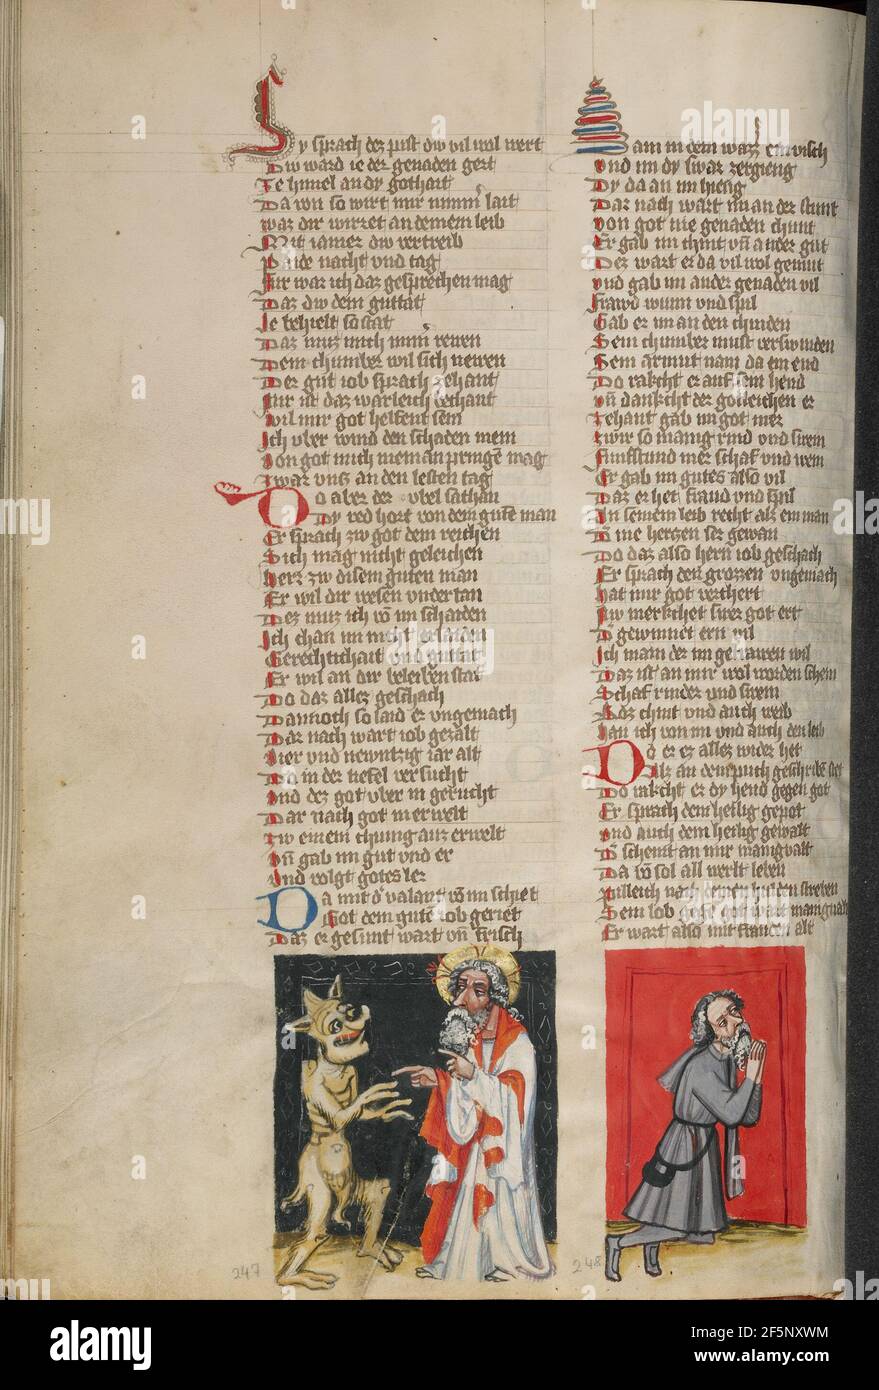 Sy sprach dez pist dw vil wol wert
Dw ward ie der genaden gert
Ze himel an dy gothait
Da von so wirt mir nimm' lait
waz dir wirret an deinem leib
Mit iamer dw vertreib
Paide nacht vnd tag
Fur war ich daz gesprechen mag
Daz dw dem guttat
Ie behielt so stat
Daz muz mich imm' rewen
Dein chumber wil sich newen
Der gut iob sprach zehant
Fur ist daz warleich bechant
wil mir got helfent sein
Ich vber wind den schaden mein
Von got mich nieman pringe mag
Zwar vntz an den lesten tag
Do aber der vbel sathan
Dy red hort von dem gute man
Er sprach zw got dem reichen
Sich mag nicht geleichen
herz zw disem guten man
Er wil dir wesen vndertan
Dez muz ich vo im schaiden
Ich chan im nicht erlaiden
Gerechtichait vnd guttat
Er wil an dir beleiben stat
Do daz allez geschach
Dannoch so laid er vngemach
Dar nach wart iob gezalt
Vier vnd newntzig iar alt
Da in der tiefel versucht
Vnd dez got vber in gerucht
Dar nach got in erwelt
Zw einem chunig auz erwelt
Vn gab im gut vnd er
Vnd volgt gotes ler
Da mit d' valant vo im schiet
Got dem gute iob geriet
Daz er gesunt wart vn frisch
Sam in dem waz' ein visch
Vnd im dy swar zergieng
Dy da an im hieng
Dar nach wart im an der stunt
Von got nie genaden chunt
Er gab im chint vn ander gut
Dez wart er da vil wol gemut
Vnd gab im ander genaden vil
Frawd wunn vnd spil
Gab er im an den chinden
Sein chumber must verswinden
Sein armut nam da ein end
Do rakcht er auf sein hend
Vn dankcht der gotleichen er
Zehant gab im got mer
Zwir so manig rind vnd swein
Funfstund mer schaf vnd wein
Er gab im gutes also vil
Daz er het fraud vnd spil
In seinem leib recht alz ein man
D nie herzen ser gewan
Do daz also hern iob geschach
Er sprach den grozzen vngemach
hat mir got verchert
Nw merkchet swer got ert
D gewinnet ern vil
Ich main der im getrawen wil
Daz ist an mir wol worden schein
Schaf rinder vnd swein
Voz chint vnd auch weib
han ich von im vnd auch den leib
Do er ez allez wider het
Alz an dem puch geschribe stet
Do rakcht er dy hend gegen got
Er sprach dem heilig gepot
Vnd auch dem heilig gewalt
D scheint an mir manigualt
Da vo sol all werlt leben
Pilleich nach ewen hulden streben
Sein lob gehe got wart manigualt
Er wart also mit frauden alt
247
248
alamy
a
Image ID: 2F5NXWM
www.alamy.com